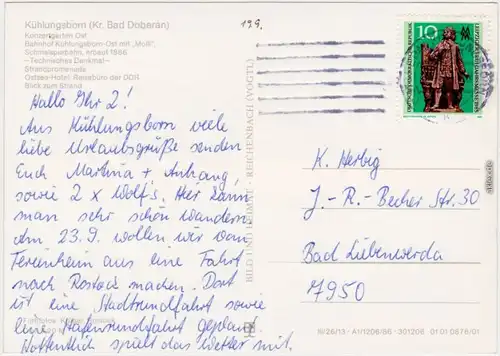 Kühlungsborn (Kr. Bad Doberan)
Konzertgarten Ost
Bahnhof Kühlungsborn-Ost mit „Molli",
Schmalspurbahn, erbaut 1886
- Technisches Denkmal -
Strandpromenade
Ostsee-Hotel, Reisebüro der DDR
Blick zum Strand
199.
10
DEUTSCHE DEMOKRATISCHE REPUBLIK
Hallo Ihr 2!
Aus Kühlungsborn viele
liebe Urlaubsgrüße senden
Euch Martina + Anhang,
sowie 2 x Wolf's. Hier kann
man sehr schön wandern.
Am 23.9. wollen wir vom
Ferienheim aus eine Fahrt
nach Rostock machen. Dort
ist eine Stadtrundfahrt sowie
eine Hafenrundfahrt geplant.
Hoffentlich spielt das Wetter mit.
BILD UND HEIMAT · REICHENBACH (VOGTL)
K. Herbig
J.-R.-Becher Str. 30
Bad Liebenwerda
7950
III/26/13 · A1/1206/86 · 301206 01 01 0676/01